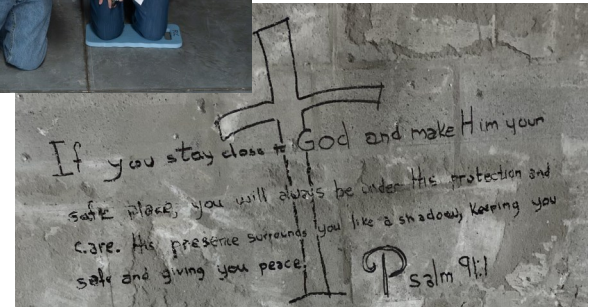 If you stay close to God and make Him your
safe place, you will always be under His protection and
care. His presence surrounds you like a shadow, keeping you
safe and giving you peace.
Psalm 91:1